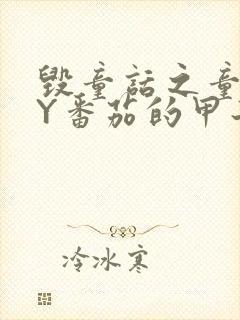 毁童话之童
Y番茄的甲
冷冰寒